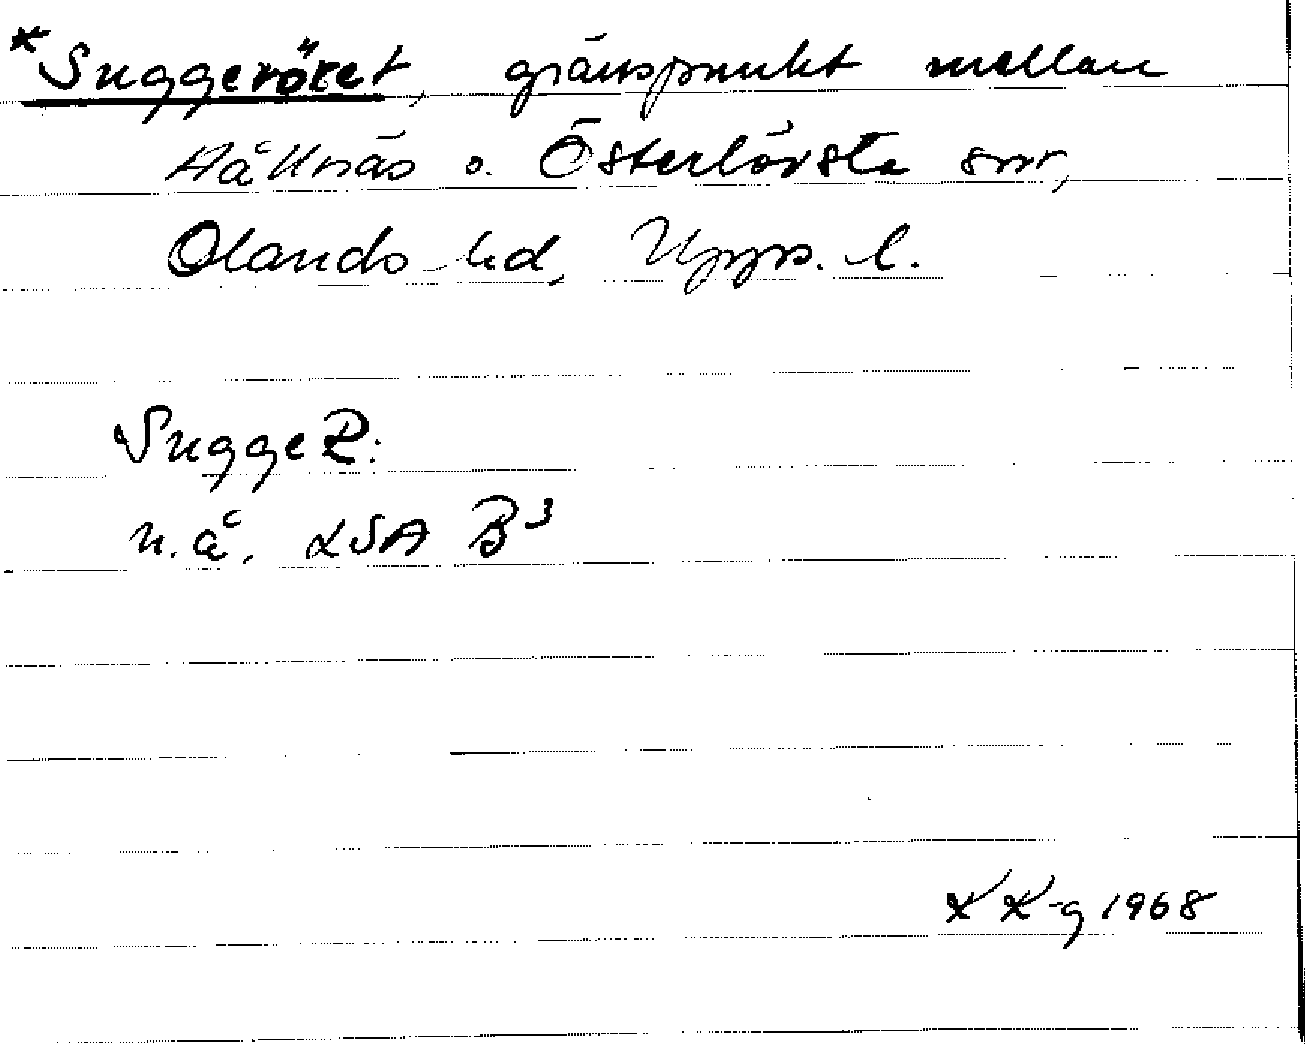 *Suggeröret, gränspunkt mellan
Hållnäs o. Österlövsta snr,
Olands hd, Upps. l.
SuggeR:
n.å. LSA B3
KK-g 1968